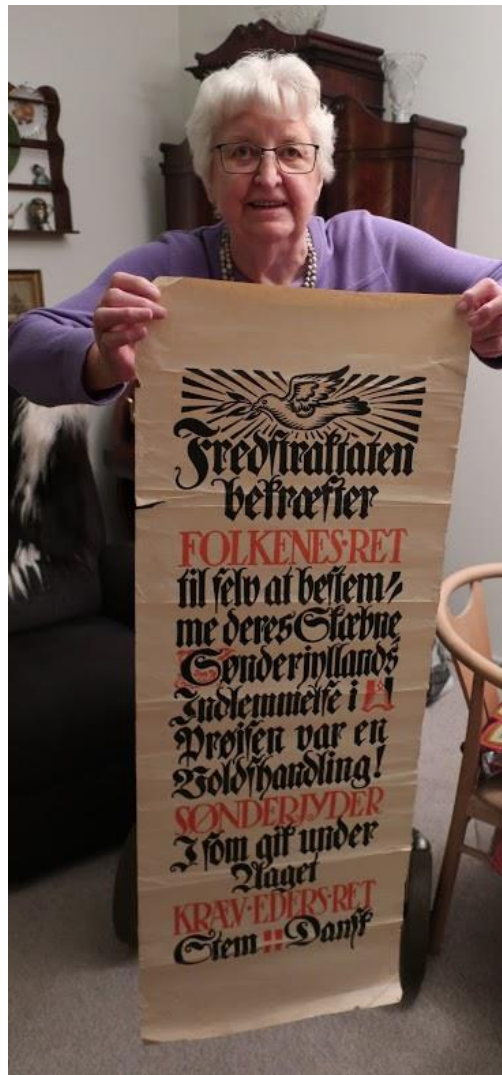 Fredstraktaten
bekræfter
FOLKENES·RET
til selv at bestem⸗
me deres Skæbne
Sønderjyllands
Indlemmelse i
Prøjsen var en
Voldshandling!
SØNDERJYDER
I som gik under
Aaget
KRÆV·EDERS·RET
Stem Dansk